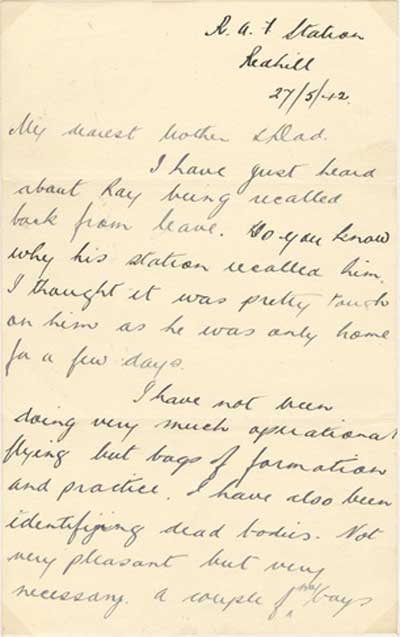 R.A.F Station
Redhill
27/5/42.
My dearest Mother & Dad.
I have just heard
about Ray being recalled
back from leave. Do you know
why his station recalled him.
I thought it was pretty tough
on him as he was only home
for a few days.
I have not been
doing very much operational
flying but bags of formation
and practice. I have also been
identifying dead bodies. Not
very pleasant but very
necessary. A couple of my boys